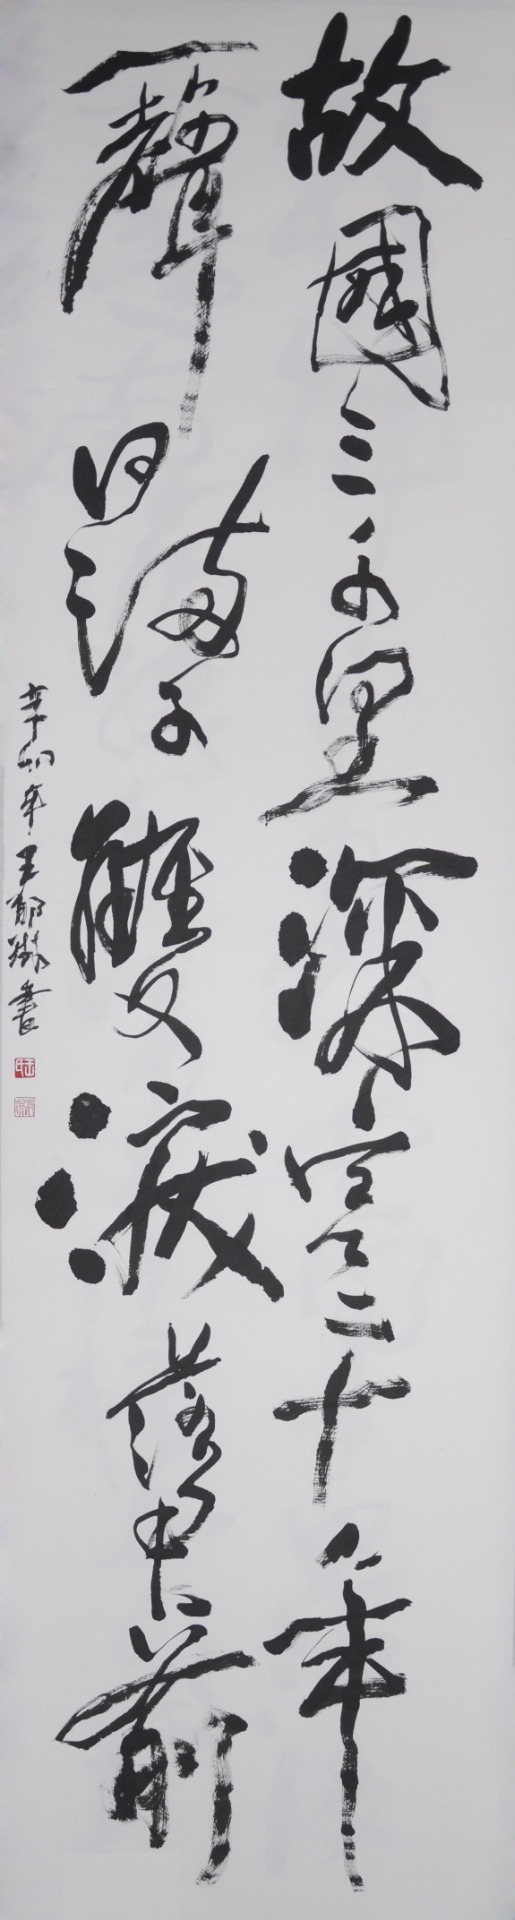 故國三千里深宮二十年
一聲何滿子雙淚落君前
辛卯年王書